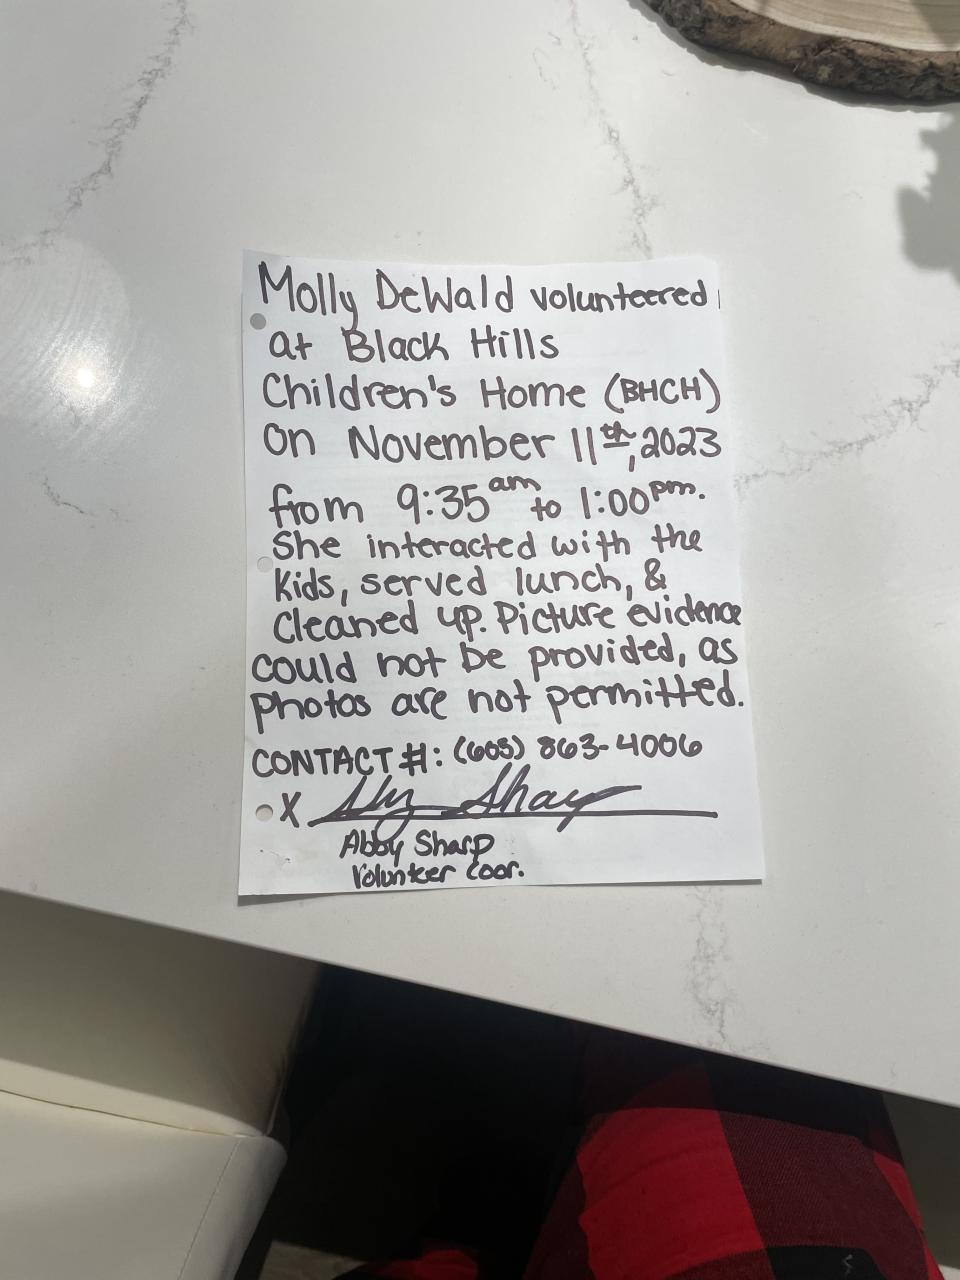 Molly DeWald volunteered
at Black Hills
Children's Home (BHCH)
on November 11th, 2023
from 9:35am to 1:00pm.
She interacted with the
kids, served lunch, &
cleaned up. Picture evidence
could not be provided, as
photos are not permitted.
CONTACT #: (605) 863-4006
X Abby Sharp
Abby Sharp
Volunteer Coor.